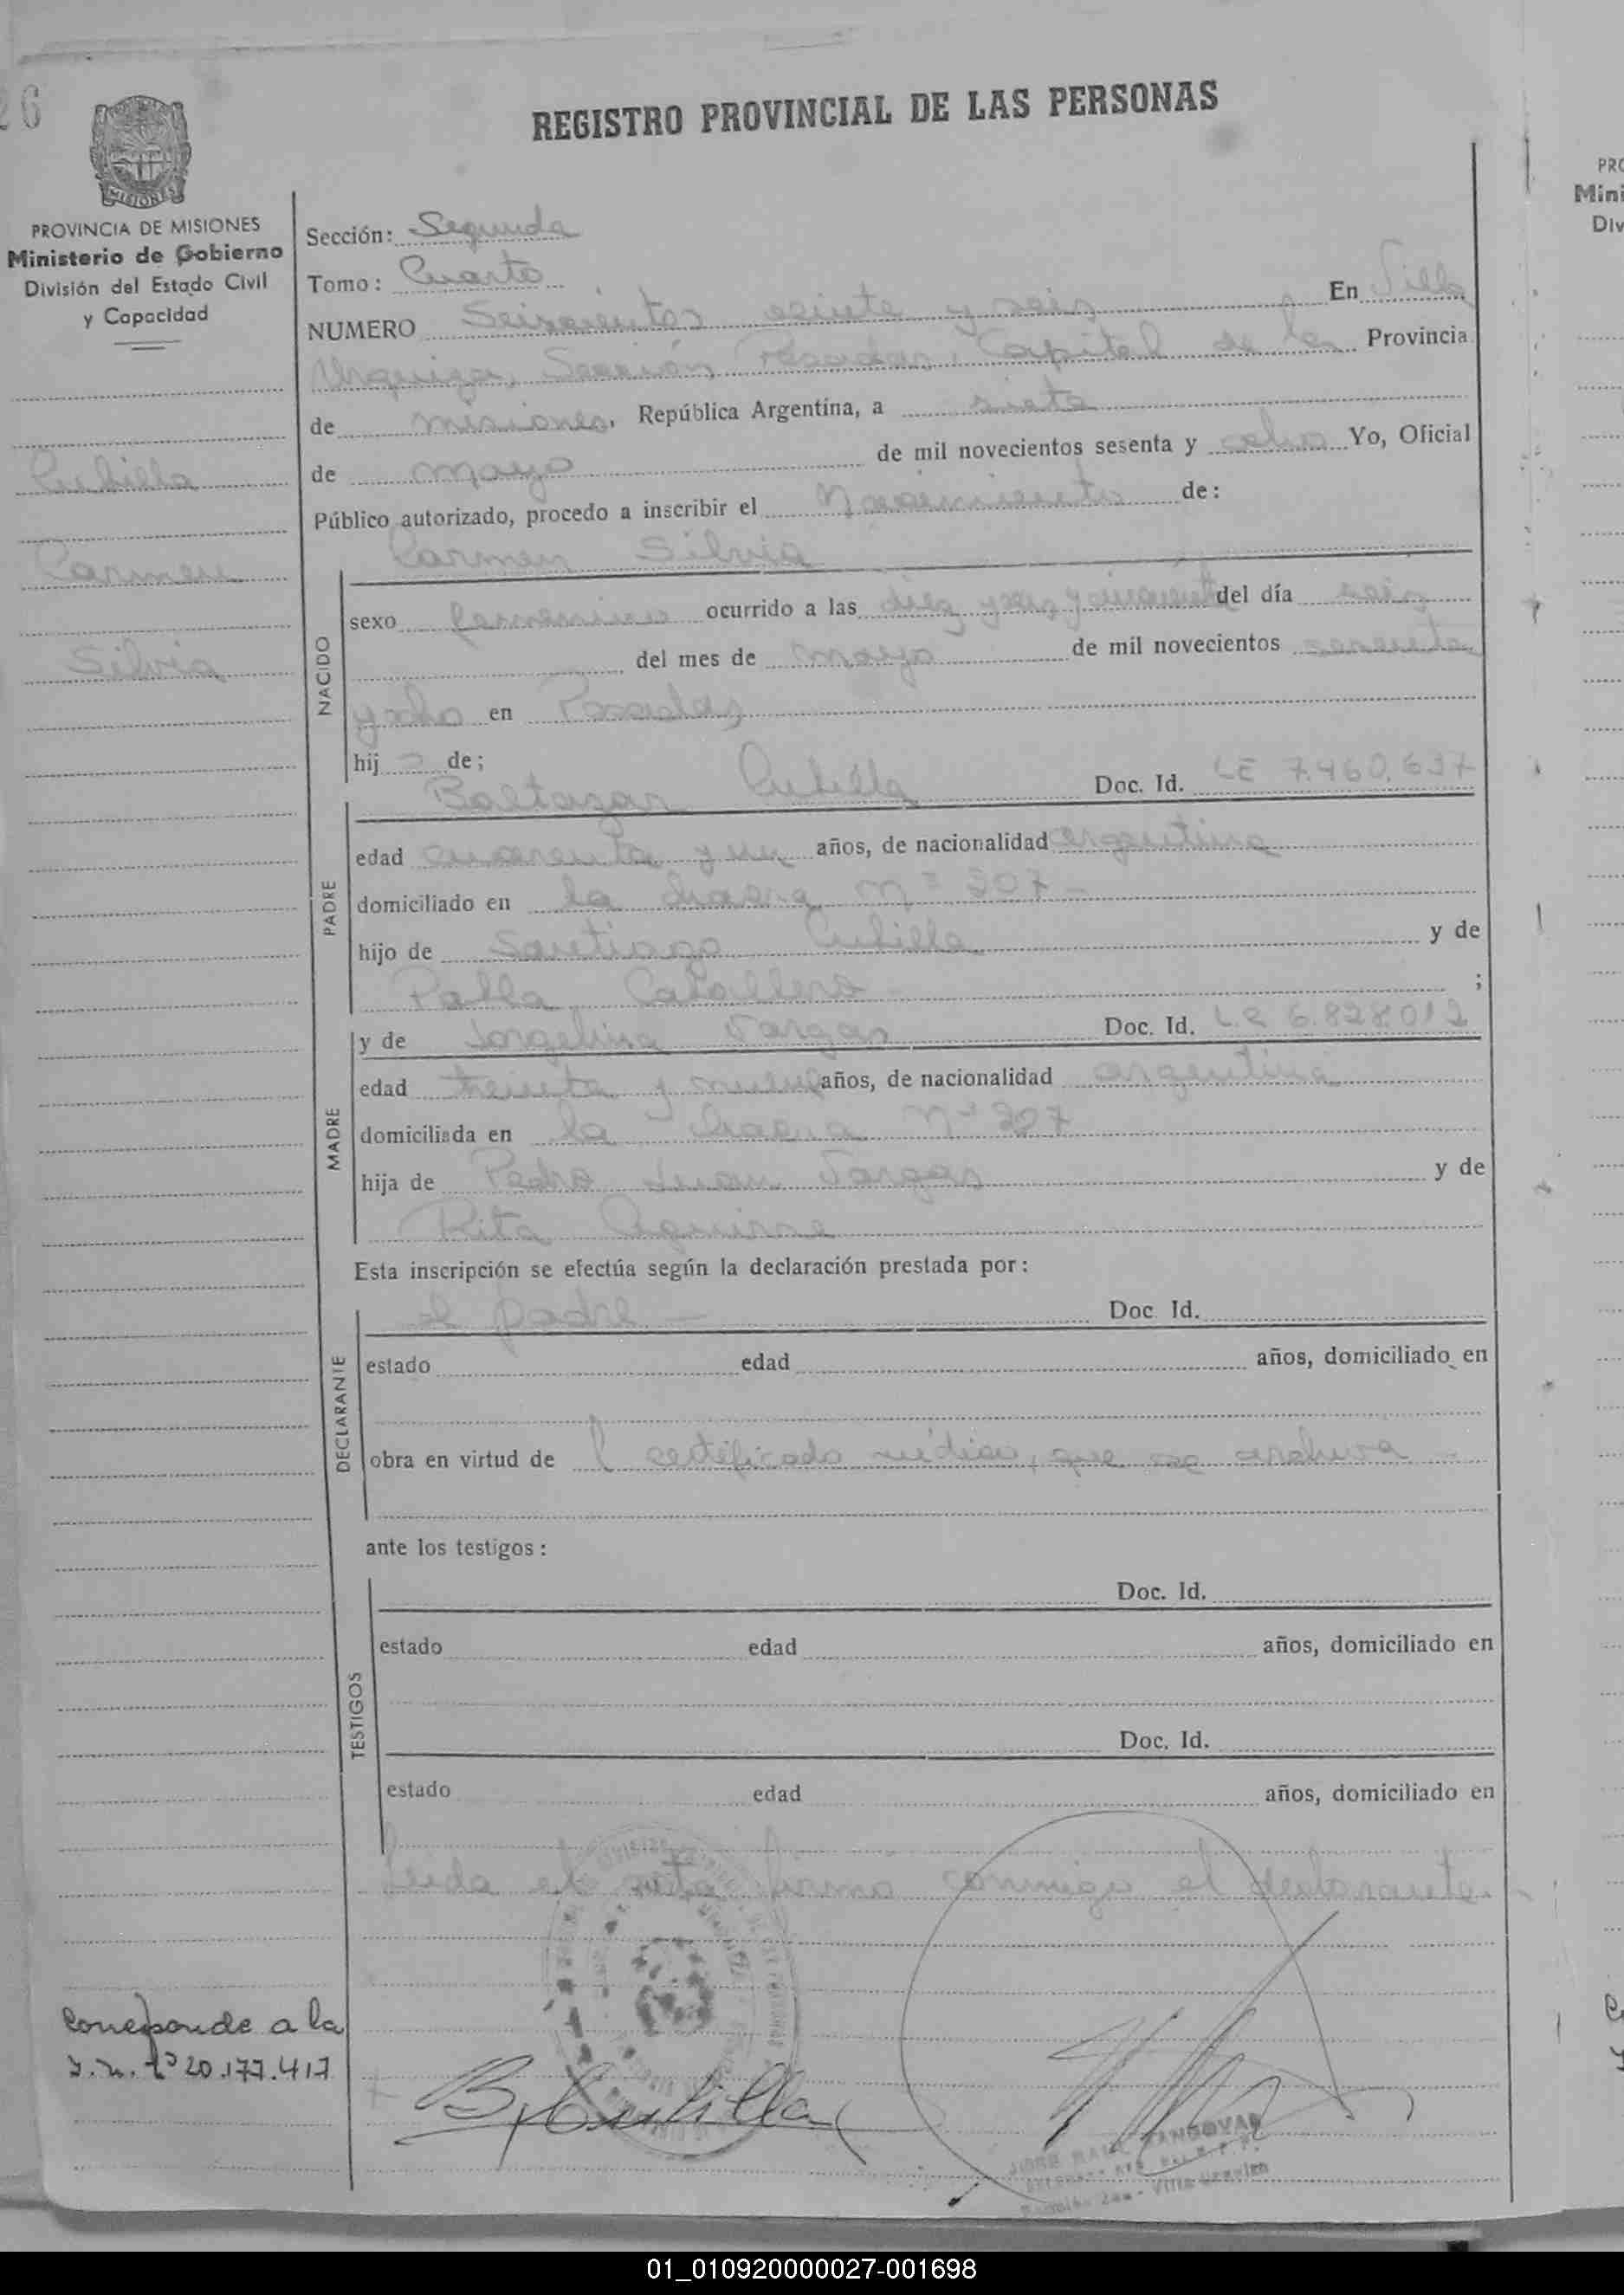 26
REGISTRO PROVINCIAL DE LAS PERSONAS
MISIONES
PROVINCIA DE MISIONES
Ministerio de Gobierno
División del Estado Civil
y Capacidad
Cubilla
Carmen
Silvia
Sección: Segunda
Tomo: Cuarto
NUMERO Seiscientos veinte y seis En Villa
Urquiza, Sección Posadas, Capital de la Provincia
de misiones, República Argentina, a siete
de mayo de mil novecientos sesenta y ocho Yo, Oficial
Público autorizado, procedo a inscribir el Nacimiento de:
Carmen Silvia
NACIDO
sexo femenino ocurrido a las diez y seis y cincuenta del día seis
del mes de mayo de mil novecientos sesenta
y ocho en Posadas
hij a de;
PADRE
Baltazar Cubilla Doc. Id. LE 7.460.637
edad cuarenta y un años, de nacionalidad argentina
domiciliado en la chacra Nº 307 -
hijo de Santiago Cubilla y de
Pabla Caballero ;
MADRE
y de Jorgelina Vargas Doc. Id. L.C 6.828.012
edad treinta y nueve años, de nacionalidad argentina
domiciliada en la chacra Nº 307
hija de Pedro Juan Vargas y de
Rita Aguirre
Esta inscripción se efectúa según la declaración prestada por:
DECLARANTE
el padre - Doc. Id.
estado edad años, domiciliado en
obra en virtud de l certificado médico, que se archiva -
ante los testigos:
TESTIGOS
Doc. Id.
estado edad años, domiciliado en
Doc. Id.
estado edad años, domiciliado en
Leida el acta firma conmigo el declarante.
Corresponde a la
Nº 20.177.417
B. Cubilla
SANDOVAL
Villa Urquiza
PRO
Mini
Div
01_010920000027-001698